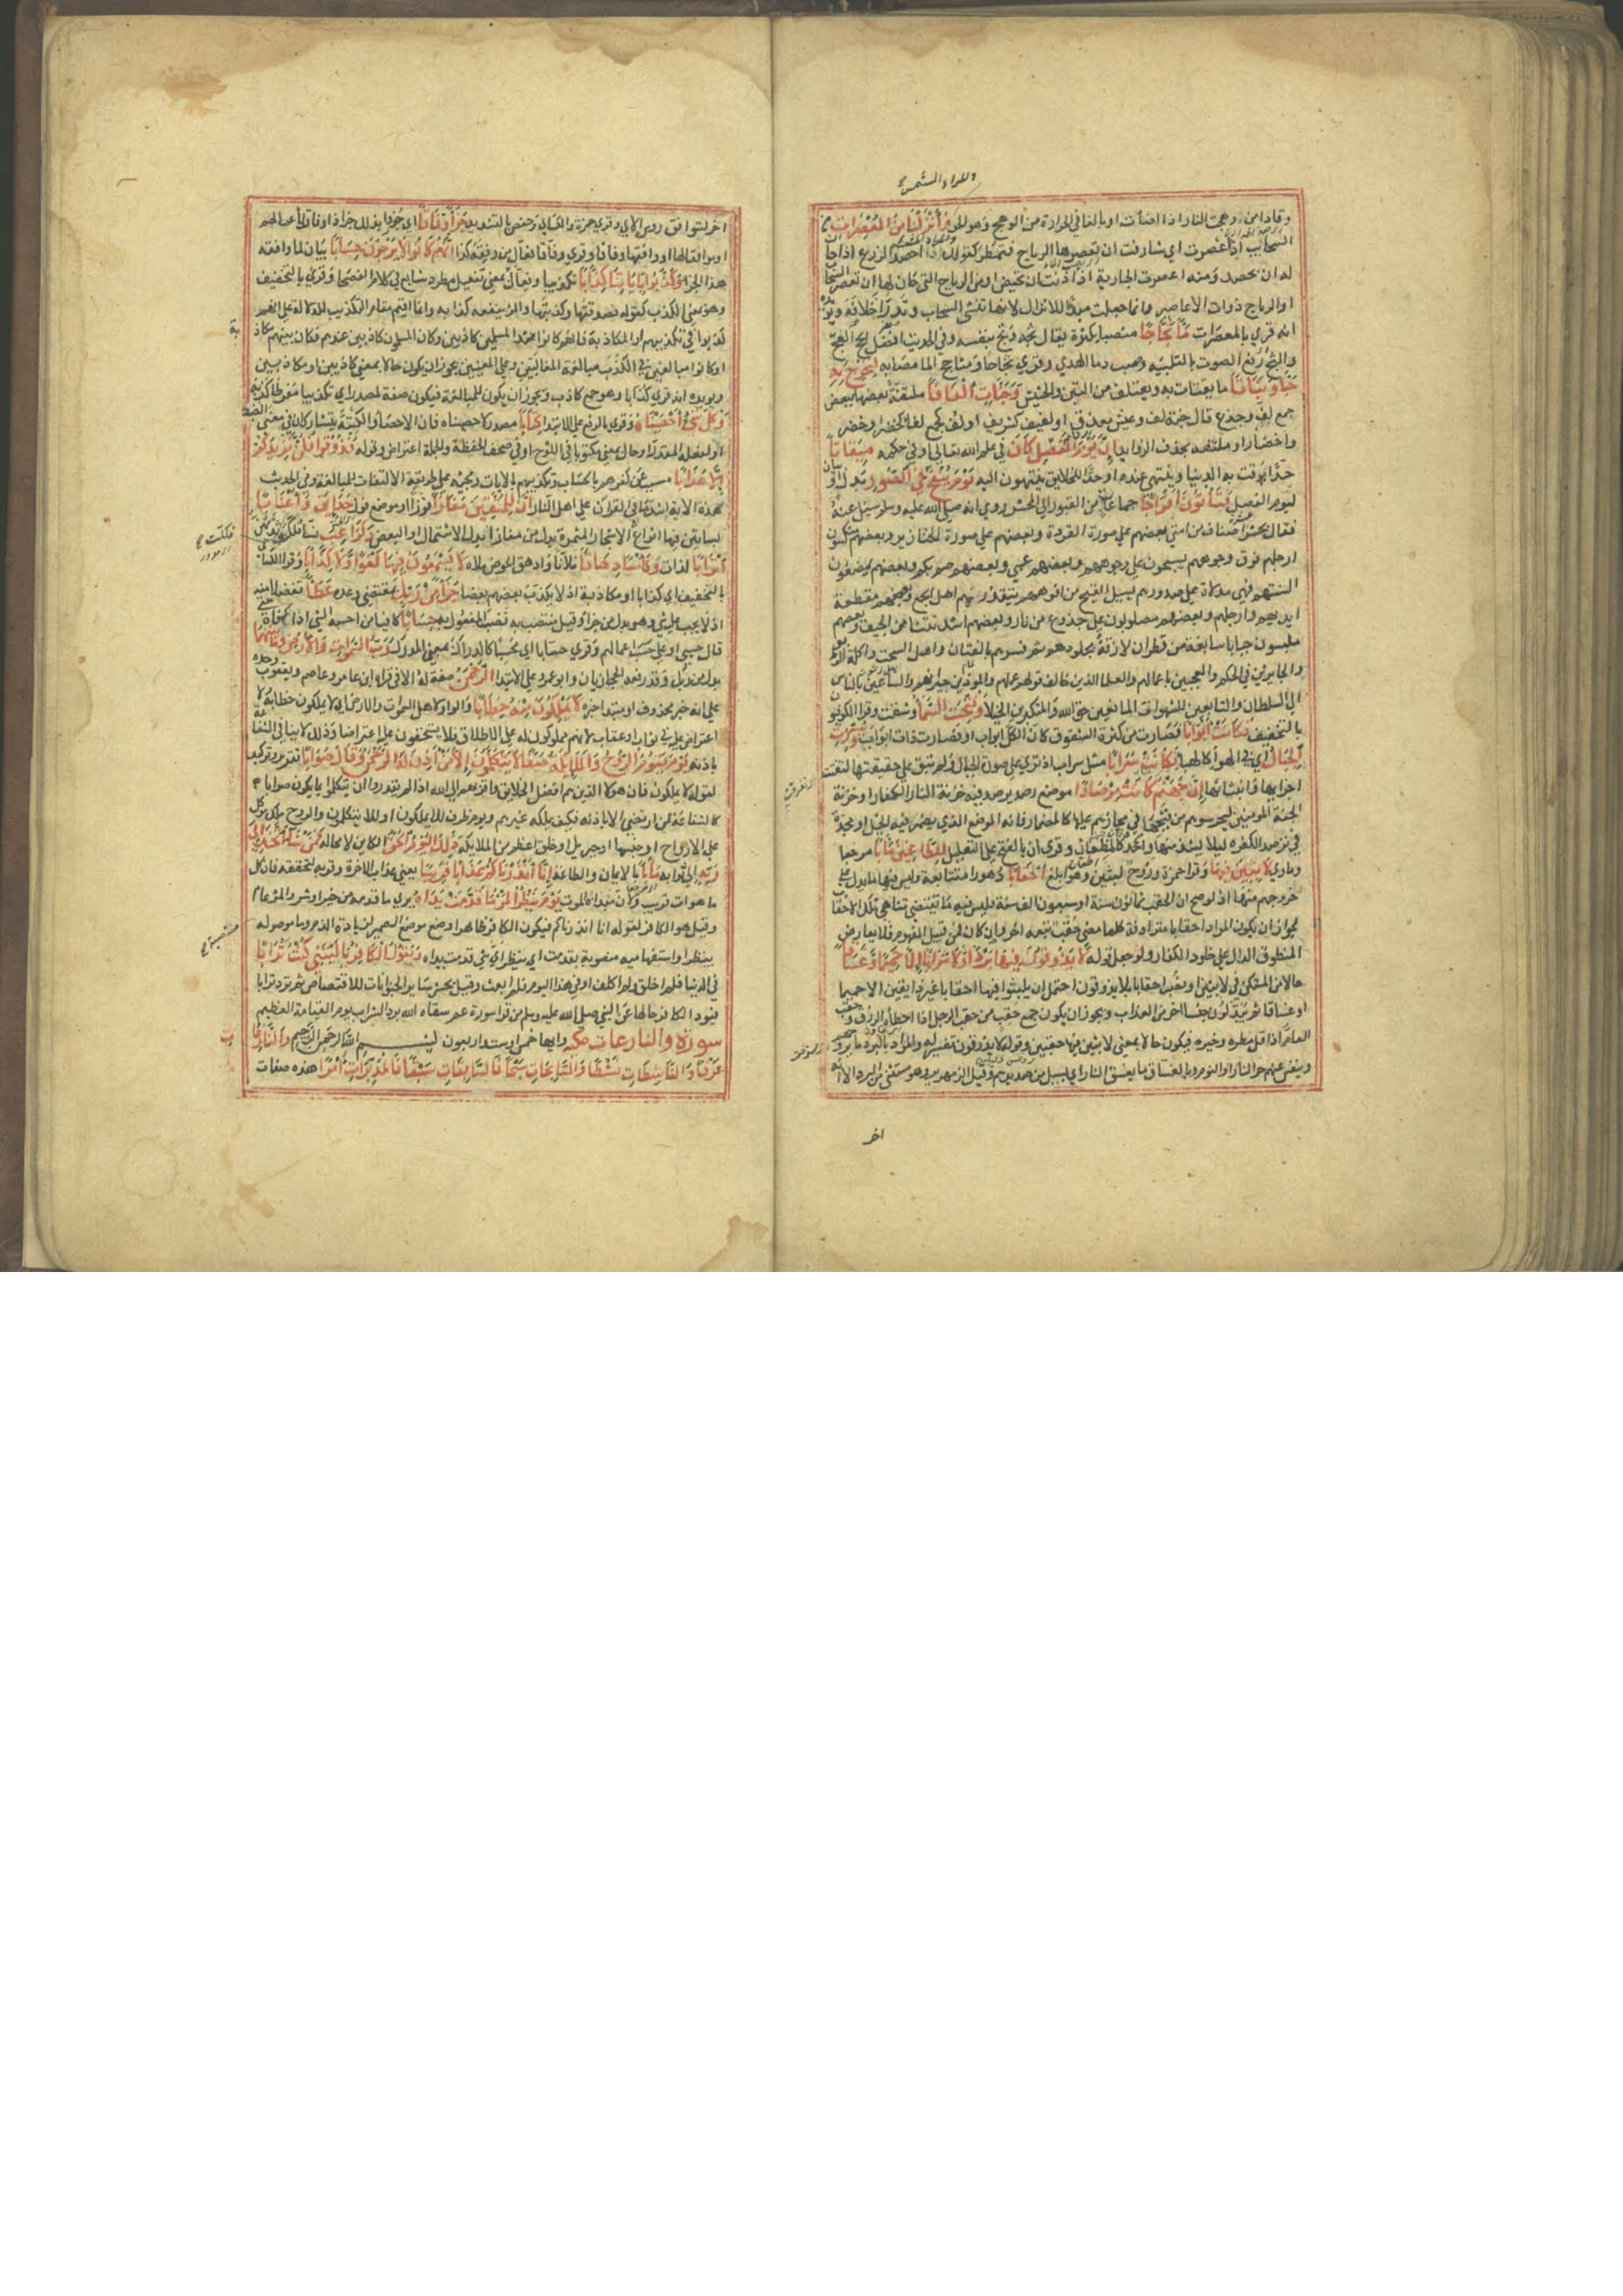 والمراد الشمس
وقادا من وهجت النار اذا اضأت او بالغا في الحرارة من الوهج وهو الحر وَأَنْزَلْنَا مِنَ المُعْصِرَاتِ
السحايب اذا اعصرت اي شارفت ان تعصرها الرياح فتمطر كقولك احصد الزرع اذا حا
له ان يحصد ومنه اعصرت الجارية اذا دنت ان تحيض او من الرياح التي حان لها ان تعصر السحا
او الرياح ذوات الاعاصير وانما جعلت مبدا للانزال لانها تنشئ السحاب وتدر اخلافه ويؤيده
انه قري بالمعصرات مَاءً ثَجَّاجًا منصبا بكثرة يقال ثجه وثج بنفسه وفي الحديث افضل الحج العج
والثج رفع الصوت بالتلبية وصب دما الهدي وقري ثجاحا ومثاجج الما مصابه لِنُخْرِجَ بِهِ
حَبًّا وَنَبَاتًا ما يقتات به ويعتلف من التبن والحشيش وَجَنَّاتٍ أَلْفَافًا ملتفة بعضها ببعض
جمع لف وجذع قال جنة لف وعيش مغدق او لفيف كشريف او لف جمع لفا كخضرا وخضر
واخضار او ملتفة بحذف الزوايد إِنَّ يَوْمَ الفَصْلِ كَانَ في علم الله تعالى او في حكمه مِيقَاتًا
حدا توقت به الدنيا وينتهي عنده او حدا للخلايق ينتهون اليه يَوْمَ يُنْفَخُ فِي الصُّورِ بدل او
ليوم الفصل فَتَأْتُونَ أَفْوَاجًا جماعات من القبور الى المحشر روي انه صلى الله عليه وسلم سيل عنه
فقال يحشر اصناف من امتي بعضهم على صورة القردة وبعضهم على صورة الخنازير وبعضهم منكسون
ارجلهم فوق وجوههم يسحبون على وجوههم وبعضهم عمي وبعضهم صم بكم وبعضهم يمضغون
السنتهم فهي مدلاة على صدورهم يسيل القيح من افواههم يتقذرهم اهل الجمع وبعضهم مقطعة
ايديهم وارجلهم وبعضهم مصلوبون على جذوع من نار وبعضهم اشد نتنا من الجيف وبعضهم
ملبسون جبابا سابغة من قطران لازقة بجلودهم ثم فسرهم بالقتات واهل السحت واكلة الربا
والجايرين في الحكم والمعجبين باعمالهم والعلما الذين خالف قولهم عملهم والموذين جيرانهم والساعين بالناس
الى السلطان والتابعين للشهوات المانعين حق الله والمتكبرين الخيلا وَفُتِحَتِ السَّمَاءُ وشقت وقرا الكوفيون
بالتخفيف فَكَانَتْ أَبْوَابًا فصارت من كثرة الشقوق كان الكل ابواب او فصارت ذات ابواب وَسُيِّرَتِ
الجِبَالُ اي في الهوا كالهبا فَكَانَتْ سَرَابًا مثل سراب اذ ترى على صورة الجبال ولم تبق على حقيقتها لتفتت
اجزايها وانبثاثها إِنَّ جَهَنَّمَ كَانَتْ مِرْصَادًا موضع رصد يرصد فيه خزنة النار الكفار او خزنة
الجنة المومنين ليحرسوهم من فيحها في مجازهم عليها كالمضمار فانه الموضع الذي يضمر فيه الخيل او مجدة
في ترصد الكفرة ليلا يشذ منها واحد كالمطعان وقري ان بالفتح على التعليل لِلطَّاغِينَ مَآبًا مرجعا
وماوى لَابِثِينَ فِيهَا وقرا حمزة وروح لبثين وهو ابلغ أَحْقَابًا دهورا متتابعة وليس فيها ما يدل على
خروجهم منها اذ لو صح ان الحقب ثمانون سنة او سبعون الف سنة فليس فيه ما يقتضي تناهي تلك الاحقاب
لجواز ان يكون المراد احقابا مترادفة كلما مضى حقب تبعه اخر وان كان فمن قبيل المفهوم فلا يعارض
المنطوق الدال على خلود الكفار ولو جعل قوله لَا يَذُوقُونَ فِيهَا بَرْدًا وَلَا شَرَابًا إِلَّا حَمِيمًا وَغَسَّاقًا
حالا من المستكن في لابثين او نصب احقابا بلا يذوقون احتمل ان يلبثوا فيها احقابا غير ذايقين الا حميما
او غساقا ثم يبدلون جنسا اخر من العذاب ويجوز ان يكون جمع حقب من حقب الرجل اذا اخطأه الرزق وحقب
العام اذا قل مطره وخيره فيكون حالا بمعنى لابثين فيها حقبين وقوله لا يذوقون تفسير له والمراد بالبرد ما يروحهم
وينفس عنهم حر النار او النوم وبالغساق ما يغسق اي يسيل من صديدهم وقيل الزمهرير وهو مستثنى من البرد الا انه
اخر
اخر لتتوافق روس الاي وقري حمزة والكسايي وحفص بالتشديد جَزَاءً وِفَاقًا اي جوزوا بذلك جزا ذا وفاق لاعمالهم
او موافقا لها او وافقها وفاقا وقري وفاقا فعال من وفقه كذا إِنَّهُمْ كَانُوا لَا يَرْجُونَ حِسَابًا بيان لما وافقه
هذا الجزا وَكَذَّبُوا بِآيَاتِنَا كِذَّابًا تكذيبا وفعال بمعنى تفعيل مطرد شايع في كلام الفصحا وقري بالتخفيف
وهو بمعنى الكذب كقوله فصدقتها وكذبتها والمرء ينفعه كذابه وانما اقيم مقام التكذيب للدلالة على انهم
كذبوا في تكذيبهم او المكاذبة فانهم كانوا عند المسلمين كاذبين وكان المسلمون كاذبين عندهم فكان بينهم مكاذ
بة
او كانوا مبالغين في الكذب مبالغة المغالبين وعلى المعنيين يجوز ان يكون حالا بمعنى كاذبين او مكاذبين
ويويده انه قري كذابا وهو جمع كاذب ويجوز ان يكون للمبالغة فيكون صفة لمصدر اي تكذيبا مفرطا كذبه
وَكُلَّ شَيْءٍ أَحْصَيْنَاهُ وقري بالرفع على الابتدا كِتَابًا مصدر لاحصيناه فان الاحصا والكتبة يتشاركان في معنى الضبط
او لفعله المقدر او حال بمعنى مكتوبا في اللوح او في صحف الحفظة والجملة اعتراض وقوله فَذُوقُوا فَلَنْ نَزِيدَكُمْ
إِلَّا عَذَابًا مسبب عن كفرهم بالحساب وتكذيبهم بالايات ومجيه على طريقة الالتفات للمبالغة وفي الحديث
هذه الاية اشد ما في القران على اهل النار إِنَّ لِلْمُتَّقِينَ مَفَازًا فوزا او موضع فوز حَدَائِقَ وَأَعْنَابًا
بساتين فيها انواع الاشجار المثمرة بدل من مفازا بدل الاشتمال او البعض وَكَوَاعِبَ نسا فلكت ثديهن
فلكت
أَتْرَابًا لدات وَكَأْسًا دِهَاقًا ملانا وادهق الحوض ملاه لَا يَسْمَعُونَ فِيهَا لَغْوًا وَلَا كِذَّابًا وقرا الكسائي
بالتخفيف اي كذابا او مكاذبة اذ لا يكذب بعضهم بعضا جَزَاءً مِنْ رَبِّكَ بمقتضى وعده عَطَاءً تفضلا منه
اذ لا يجب عليه شي وهو بدل من جزاء وقيل منتصب به نصب المفعول به حِسَابًا كافيا من احسبه الشي اذا كفاه حتى
قال حسبي او على حسب اعمالهم وقري حسابا اي محسبا كالدراك بمعنى المدرك رَبِّ السَّمَوَاتِ وَالأَرْضِ وَمَا بَيْنَهُمَا
بدل من ربك وقد رفعه الحجازيان وابو عمرو على الابتدا الرَّحْمَنِ صفة له الا في قراة ابن عامر وعاصم ويعقوب وحده
على انه خبر محذوف او مبتدا خبره لَا يَمْلِكُونَ مِنْهُ خِطَابًا والواو لاهل السموات والارض اي لا يملكون خطابه
اعتراض عليه في ثواب او عقاب لانهم مملوكون له على الاطلاق فلا يستحقون عليه اعتراضا وذلك لا ينافي الشفاعة
باذنه يَوْمَ يَقُومُ الرُّوحُ وَالمَلَائِكَةُ صَفًّا لَا يَتَكَلَّمُونَ إِلَّا مَنْ أَذِنَ لَهُ الرَّحْمَنُ وَقَالَ صَوَابًا تقرير وتوكيد
لقوله لا يملكون فان هولا الذين هم افضل الخلايق واقربهم الى الله اذا لم يقدروا ان يتكلموا بما يكون صوابا
كالشفاعة لمن ارتضى الا باذنه فكيف يملكه غيرهم ويوم ظرف للا يملكون او للا يتكلمون والروح ملك موكل
على الارواح او جنسها او جبريل او خلق اعظم من الملايكة ذَلِكَ اليَوْمُ الحَقُّ الكاين لا محالة فَمَنْ شَاءَ اتَّخَذَ إِلَى
رَبِّهِ الى ثوابه مَآبًا بالايمان والطاعة إِنَّا أَنْذَرْنَاكُمْ عَذَابًا قَرِيبًا يعني عذاب الاخرة وقربه لتحققه فان كل
ما هو ات قريب ولان مبداه الموت يَوْمَ يَنْظُرُ المَرْءُ مَا قَدَّمَتْ يَدَاهُ يرى ما قدمه من خير او شر والمرء عام
وقيل هو الكافر لقوله انا انذرناكم فيكون الكافر ظاهرا وضع موضع الضمير لزيادة الذم وما موصوله
ينظر او استفهامية منصوبة بقدمت اي ينظر اي شي قدمت يداه وَيَقُولُ الكَافِرُ يَا لَيْتَنِي كُنْتُ تُرَابًا
في الدنيا فلم اخلق ولم اكلف او في هذا اليوم فلم ابعث وقيل يحشر ساير الحيوانات للاقتصاص ثم ترد ترابا
فيود الكافر حالها عن النبي صلى الله عليه وسلم من قرا سورة عم سقاه الله برد الشراب يوم القيامة العظيم
سورة والنازعات مكيه وايها خمس او ست واربعون بسم الله الرحمن الرحيم وَالنَّازِعَاتِ
غَرْقًا وَالنَّاشِطَاتِ نَشْطًا وَالسَّابِحَاتِ سَبْحًا فَالسَّابِقَاتِ سَبْقًا فَالمُدَبِّرَاتِ أَمْرًا هذه صفات